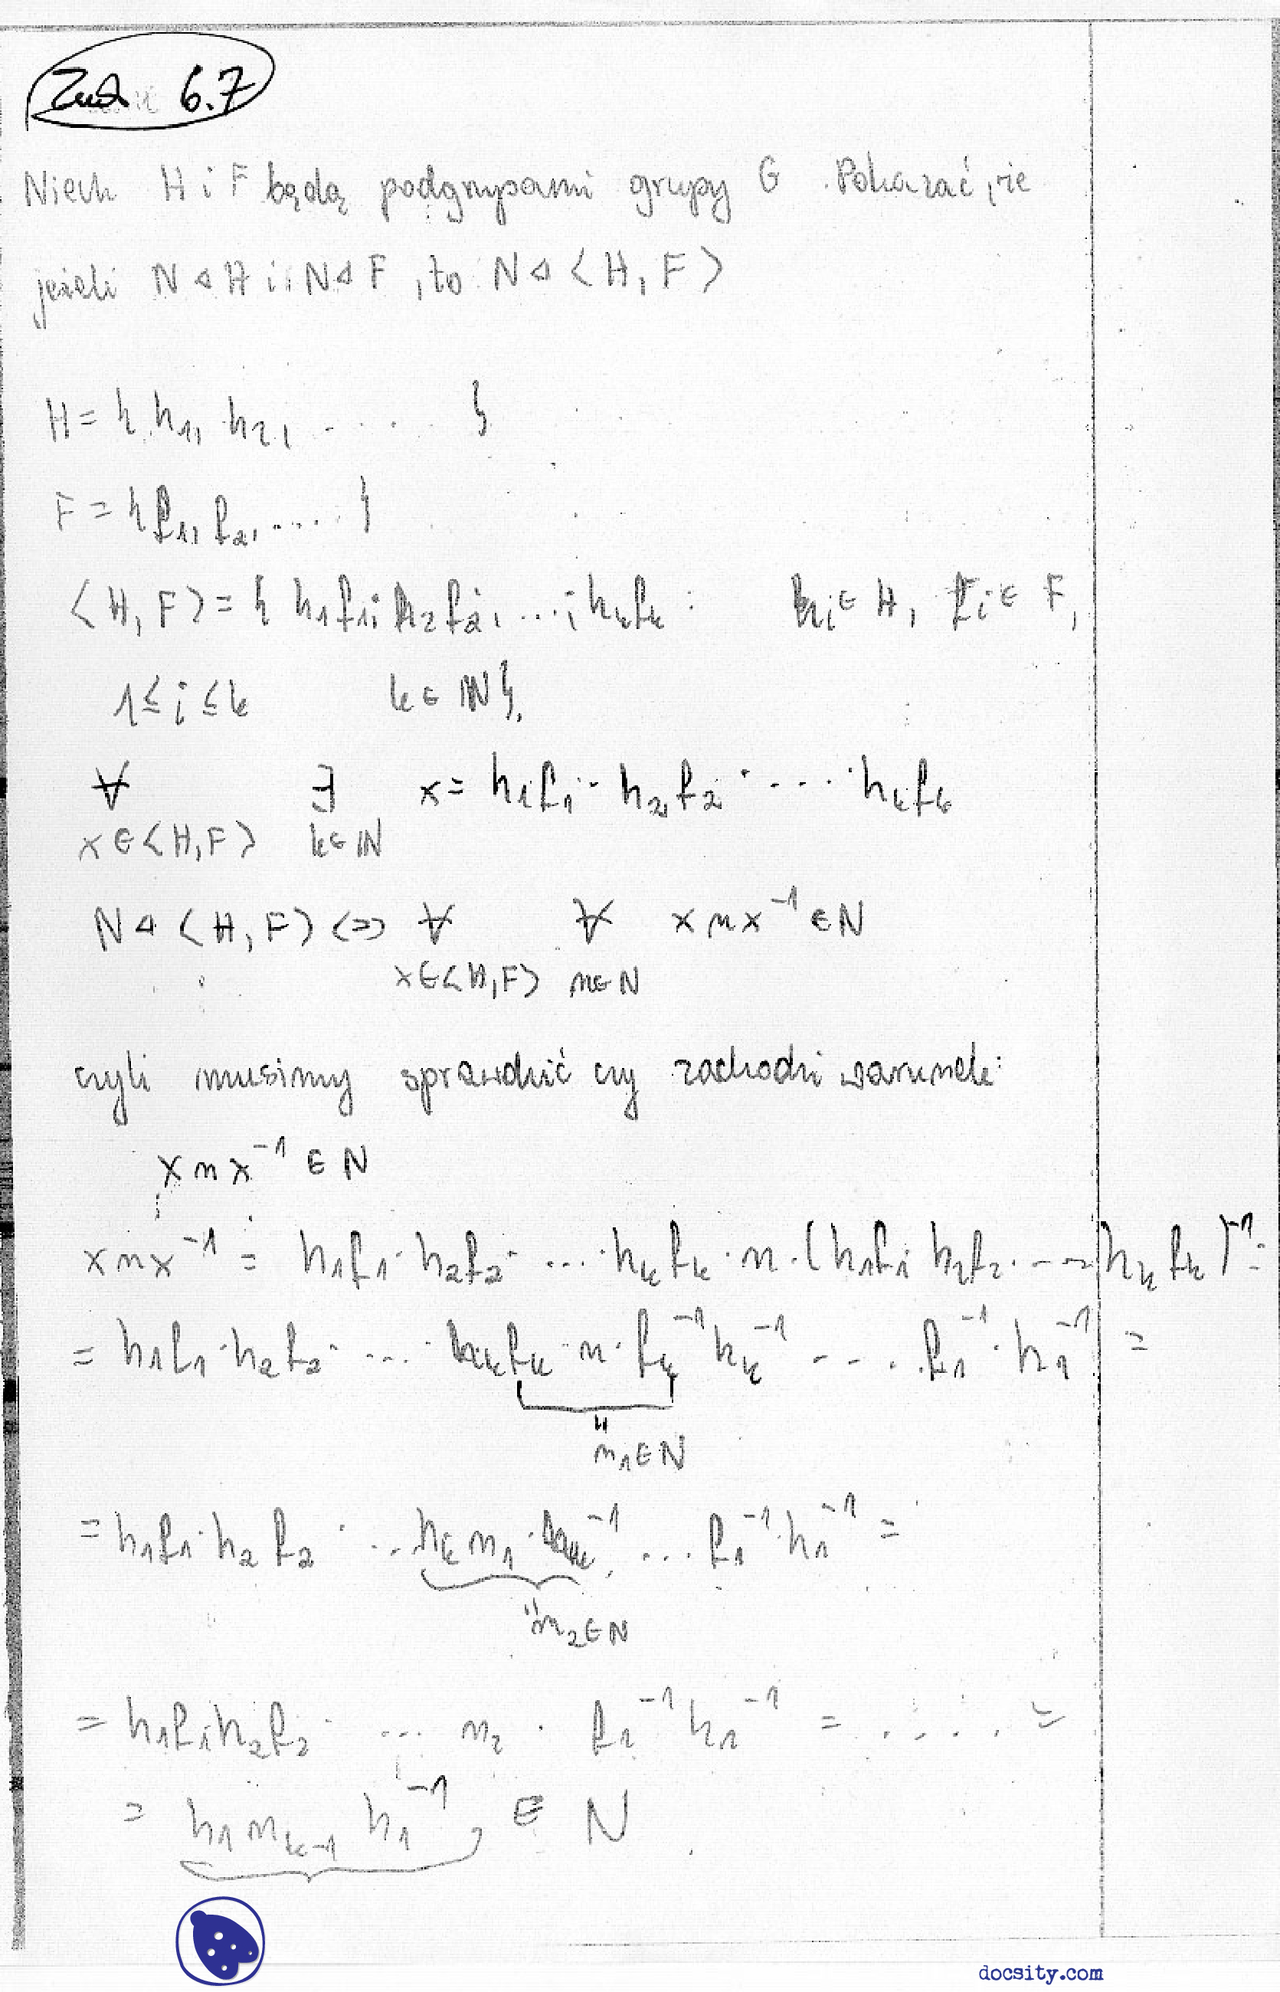 Zad 6.7
Niech H i F będą podgrupami grupy G. Pokazać, że
jeżeli N ⊲ H i N ⊲ F, to N ⊲ <H, F>
H = { h₁, h₂, . . . . }
F = { f₁, f₂, . . . . }
<H, F> = { h₁f₁, h₂f₂, ..., hₖfₖ : hᵢ ∈ H, fᵢ ∈ F,
1 ≤ i ≤ k k ∈ ℕ },
∀ ∃ x = h₁f₁ · h₂f₂ · ... · hₖfₖ
x ∈ <H, F> k ∈ ℕ
N ⊲ <H, F> <=> ∀ ∀ x n x⁻¹ ∈ N
x ∈ <H, F> n ∈ N
czyli musimy sprawdzić czy zachodzi warunek:
x n x⁻¹ ∈ N
x n x⁻¹ = h₁f₁ · h₂f₂ · ... hₖfₖ · n · (h₁f₁ h₂f₂ · ... hₖfₖ)⁻¹ =
= h₁f₁ · h₂f₂ · ... hₖfₖ · n · fₖ⁻¹ hₖ⁻¹ . . . . f₁⁻¹ · h₁⁻¹ =
"
n₁ ∈ N
= h₁f₁ · h₂f₂ · ... hₖ n₁ · hₖ⁻¹ ... f₁⁻¹ · h₁⁻¹ =
"
n₂ ∈ N
= h₁f₁h₂f₂ · ... n₂ · f₁⁻¹ h₁⁻¹ = . . . . . =
= h₁ nₖ₋₁ h₁⁻¹ ∈ N
docsity.com